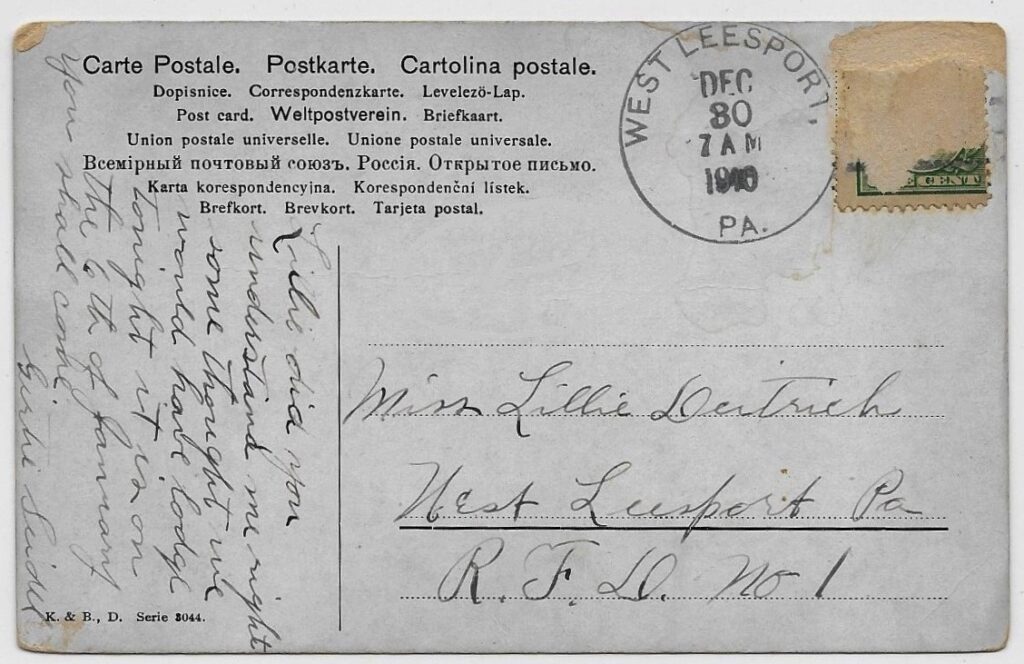 Carte Postale. Postkarte. Cartolina postale.
Dopisnice. Correspondenzkarte. Levelezö-Lap.
Post card. Weltpostverein. Briefkaart.
Union postale universelle. Unione postale universale.
Всемірный почтовый союзъ. Россія. Открытое письмо.
Karta korespondencyjna. Korespondenční lístek.
Brefkort. Brevkort. Tarjeta postal.
WEST LEESPORT,
DEC
30
7 AM
1910
PA.
CENT
Lillie did you
understand me right
some thought we
would have lodge
tonight it is on
the 6 th of January
you shall come
Girtie Seidel
Miss Lillie Deitrich
West Leesport Pa
R. F. D. No 1
K. & B., D. Serie 3044.